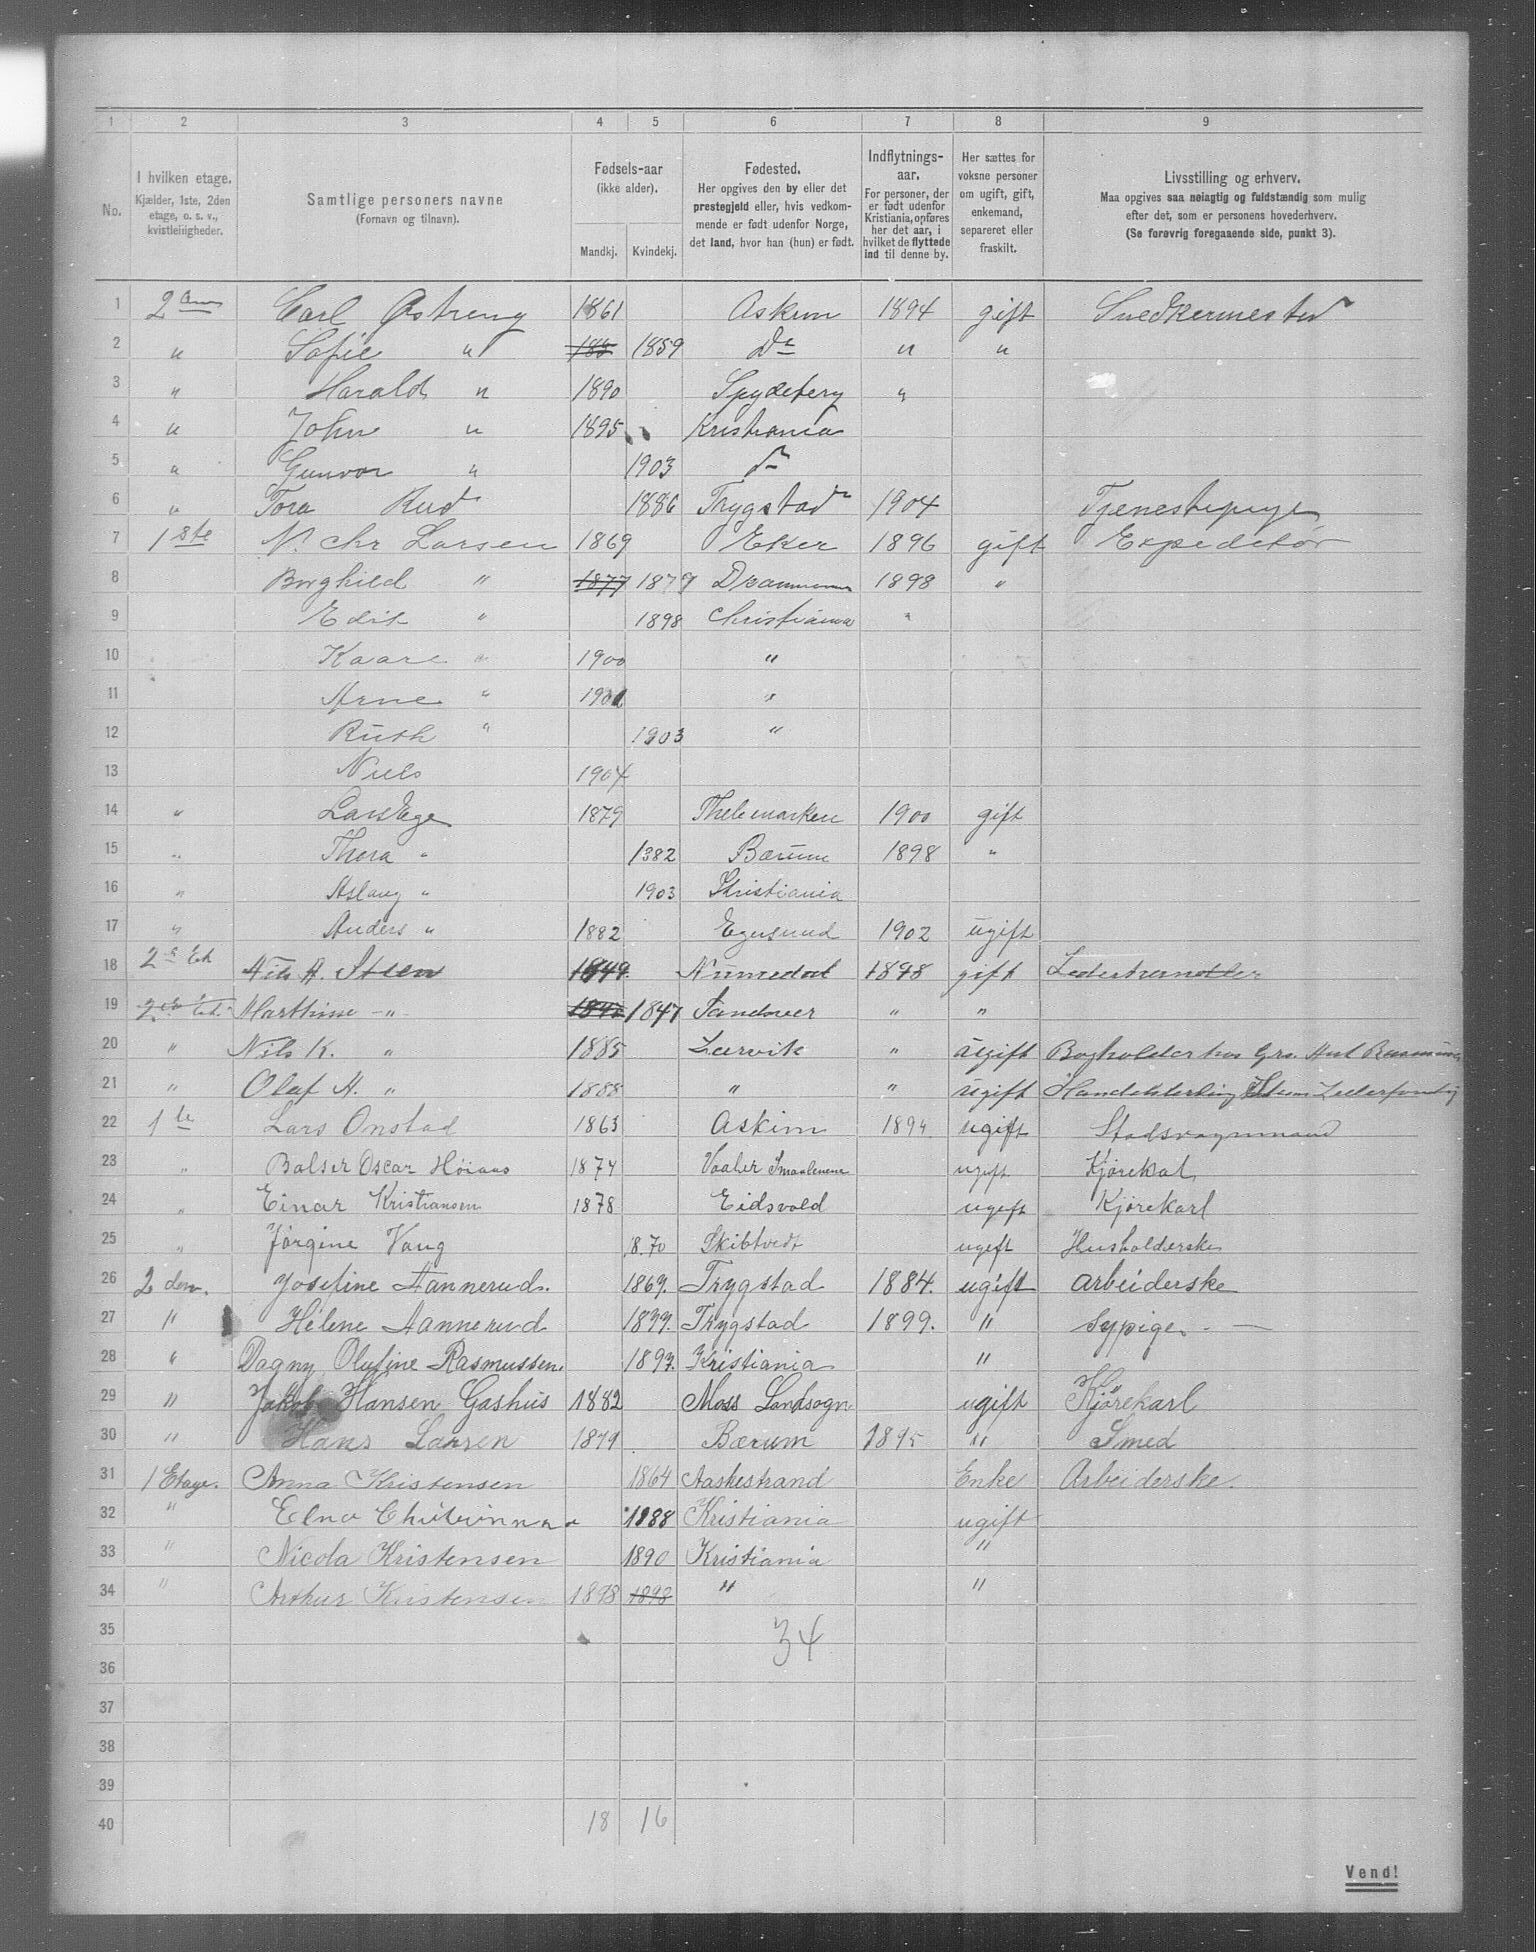 1 2 3 4 5 6 7 8 9
No.
I hvilken etage.
Kjælder, 1ste, 2den
etage, o. s. v.,
kvistleiligheder.
Samtlige personers navne
(Fornavn og tilnavn).
Fødsels-aar
(ikke alder).
Mandkj. Kvindekj.
Fødested.
Her opgives den by eller det
prestegjeld eller, hvis vedkom-
mende er født udenfor Norge,
det land, hvor han (hun) er født.
Indflytnings-
aar.
For personer, der
er født udenfor
Kristiania, opføres
her det aar, i
hvilket de flyttede
ind til denne by.
Her sættes for
voksne personer
om ugift, gift,
enkemand,
separeret eller
fraskilt.
Livsstilling og erhverv.
Maa opgives saa nøiagtig og fuldstændig som mulig
efter det, som er personens hovederhverv.
(Se forøvrig foregaaende side, punkt 3).
1 2den Carl Østreng 1861 Askim 1894 gift Snedkermester
2 " Sofie " 1859 Do " "
3 " Harald " 1890 Spydeberg "
4 " John " 1895 Kristiania
5 " Gunvor " 1903 do
6 " Tora Rud 1886 Trygstad 1904 Tjenestepige
7 1ste N. Chr Larsen 1869 Eker 1896 gift Expeditør
8 Borghild " 1877 1879 Drammen 1898 "
9 Edit " 1898 Christiania "
10 Kaare " 1900 "
11 Arne " 1901 "
12 Ruth " 1903 "
13 Niels 1904
14 " Lars Ege 1879 Thelemarken 1900 gift
15 " Thora " 1882 Bærum 1898 "
16 " Aslaug " 1903 Kristiania
17 " Anders " 1882 Egersund 1902 ugift
18 2 Et Nils A. Steen 1849 Numedal 1898 gift Læderhandler
19 2 et. Marthine " 1847 Sandsvær " "
20 " Nils K. " 1885 Larvik " ugift Bogholder hos
21 " Olaf A. " 1888 " " ugift Handelslærling
22 1te Lars Onstad 1863 Askim 1894 ugift Stadsvognmand
23 " Balser Oscar Høiaas 1874 Vaaler Smaalenene ugift Kjørekal
24 " Einar Kristiansen 1878 Eidsvold ugift Kjørekarl
25 " Jørgine Vaug 8.70 Skibtvedt ugift Husholderske
26 2 den. Josefine Sannerud. 1869. Trygstad 1884. ugift arbeiderske
27 " Helene Sannerud Trygstad 1899. " Sypige
28 " Dagny Olufine Rasmussen. 1897. Kristiania "
29 " Jakob Hansen Gashus 1882 Moss Landsogn ugift Kjørekarl
30 " Hans Larsen 1879 Bærum 1895 " Smed
31 1 Etage. Anna Kristensen 1864 Aaskestrand Enke Arbeiderske.
32 " Elna 1888 Kristiania ugift
33 " Nicola Kristensen 1890 Kristiania "
34 " Arthur Kristensen 1898 1898 " "
35 34
36
37
38
39
40 18 16
Vend!